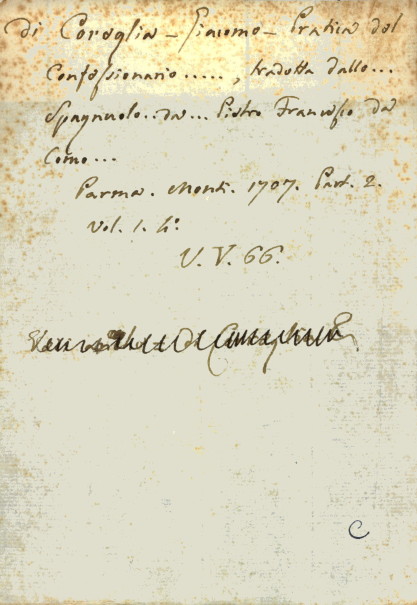 Di Coreglia - Giacomo - Pratica del
Confessionario....., tradotta dallo...
Spagnuolo..da... Pietro Francesco da
Como...
Parma. Monti. 1707. Part. 2.
Vol. 1. 4.º
U. V. 66.
C